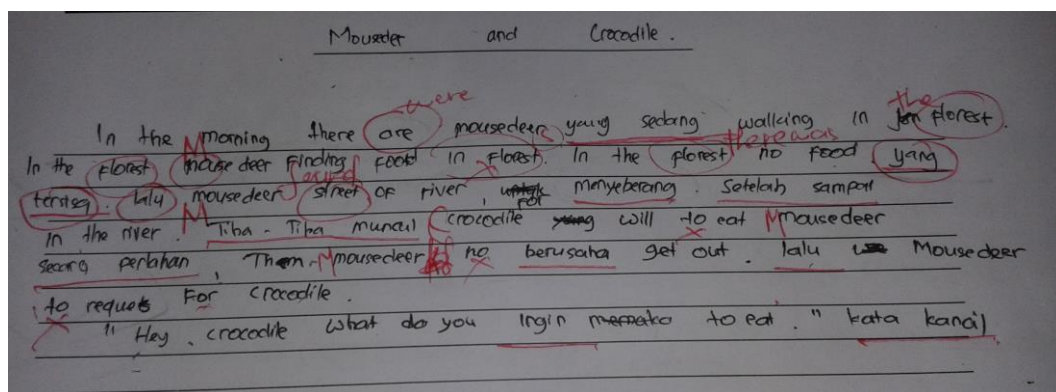 Mouseder and Crocodile.
were the
In the Mmorning there are mousedeer yang sedang wallking in florest.
there was
In the florest mouse deer Finding food in Florest. In the florest no food yang
tersisa. Lalu mousedeer street of river, for menyeberang. Setelah sampai
In the river. M Tiba-Tiba muncul crocodile yang will to eat Mmousedeer
secara perlahan, Then Mmousedeer no berusaha get out. lalu Mousedeer
to requets For crocodile.
"Hey, crocodile what do you Ingin to eat." kata kancil